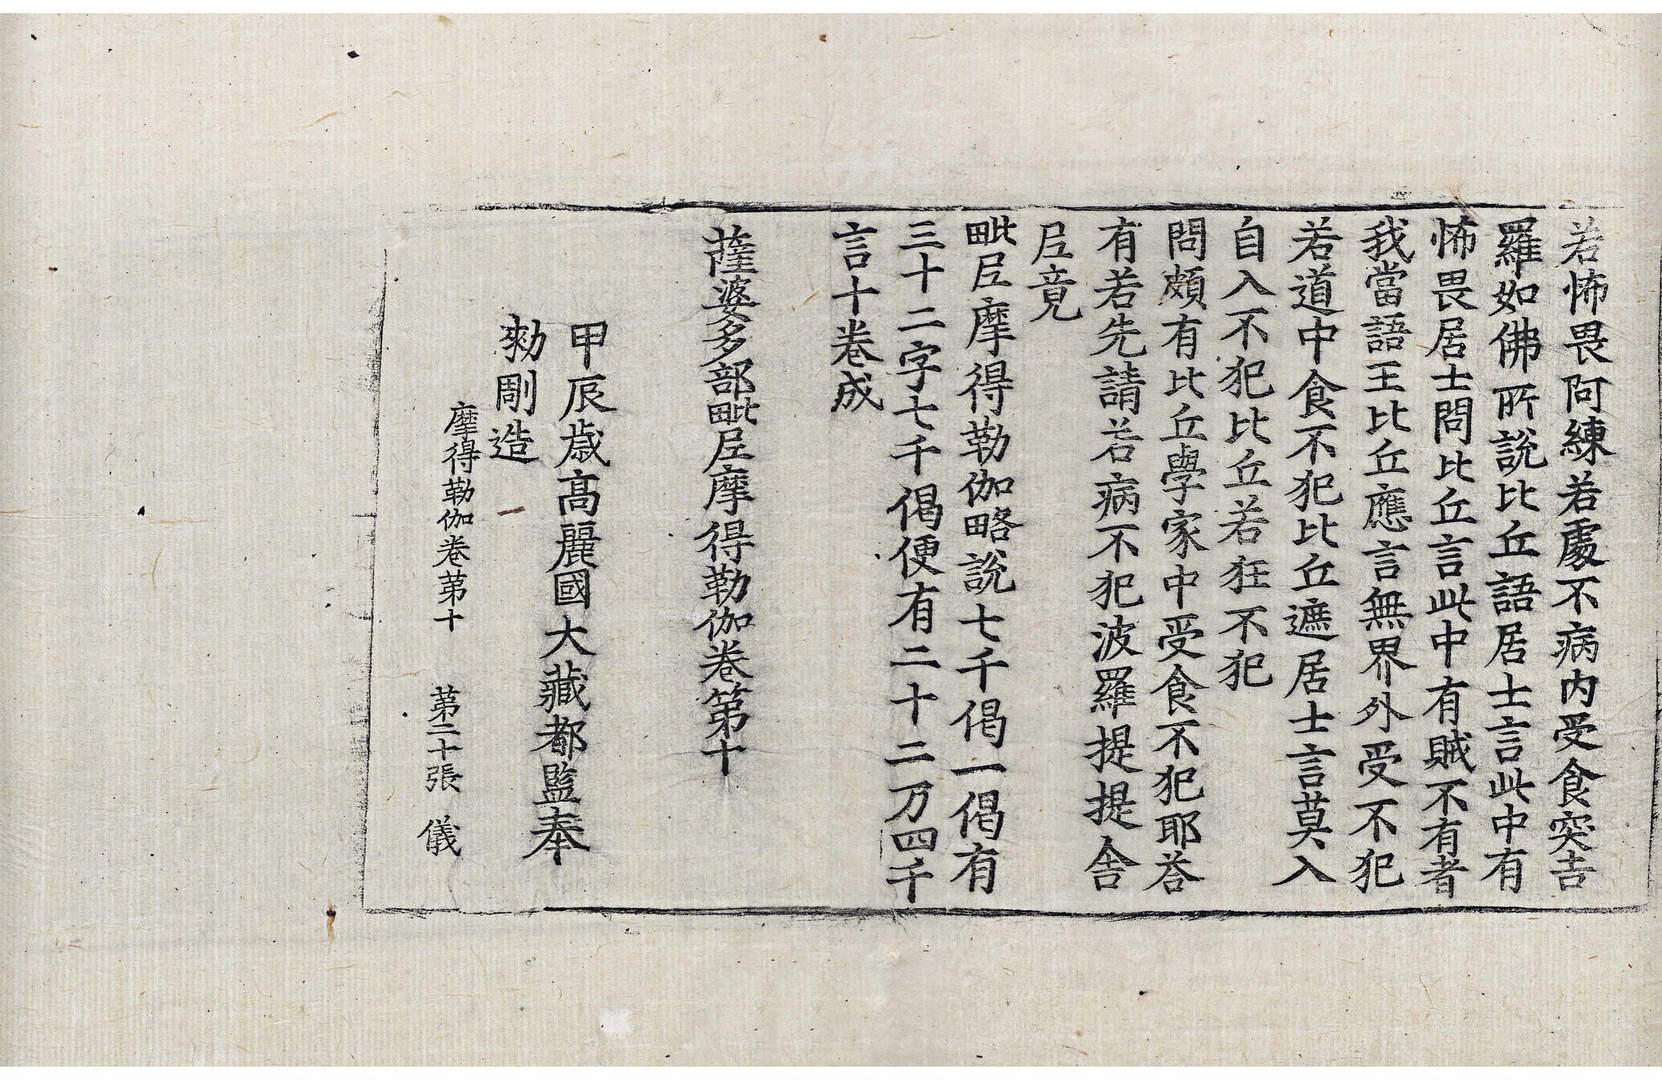 若怖畏阿練若處不病內受食突吉
羅如佛所說比丘語居士言此中有
怖畏居士問比丘言此中有賊不有者
我當語王比丘應言無界外受不犯
若道中食不犯比丘遮居士言莫入
自入不犯比丘若狂不犯
問頗有比丘學家中受食不犯耶荅
有若先請若病不犯波羅提提舍
𡰱竟
毗𡰱摩得勒伽略說七千偈一偈有
三十二字七千偈便有二十二万四千
言十卷成
薩婆多部毗𡰱摩得勒伽卷第十
甲辰歲高麗國大藏都監奉
勑彫造
摩得勒伽卷第十 第二十張 儀